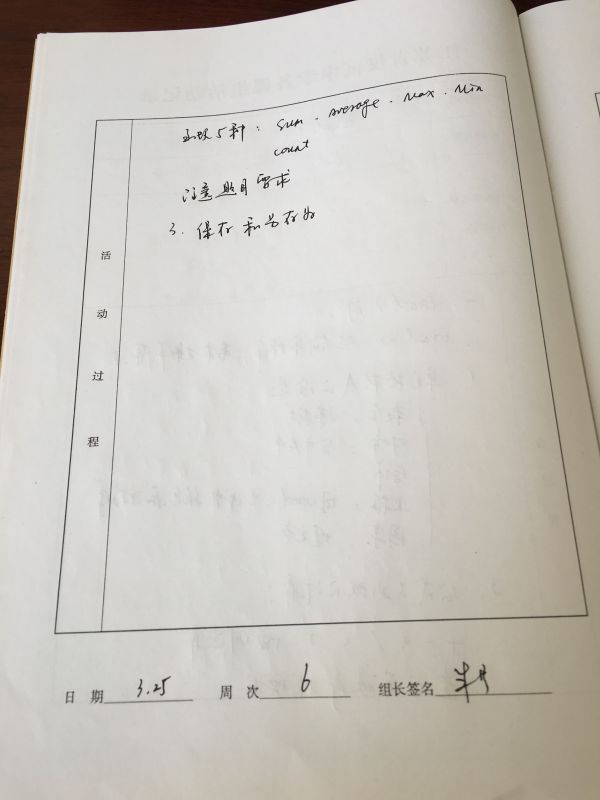 函数5种：sum . average . Max . Min
count
注意题目要求
3. 保存和另存为
活动过程
日 期 3.25 周 次 6 组长签名